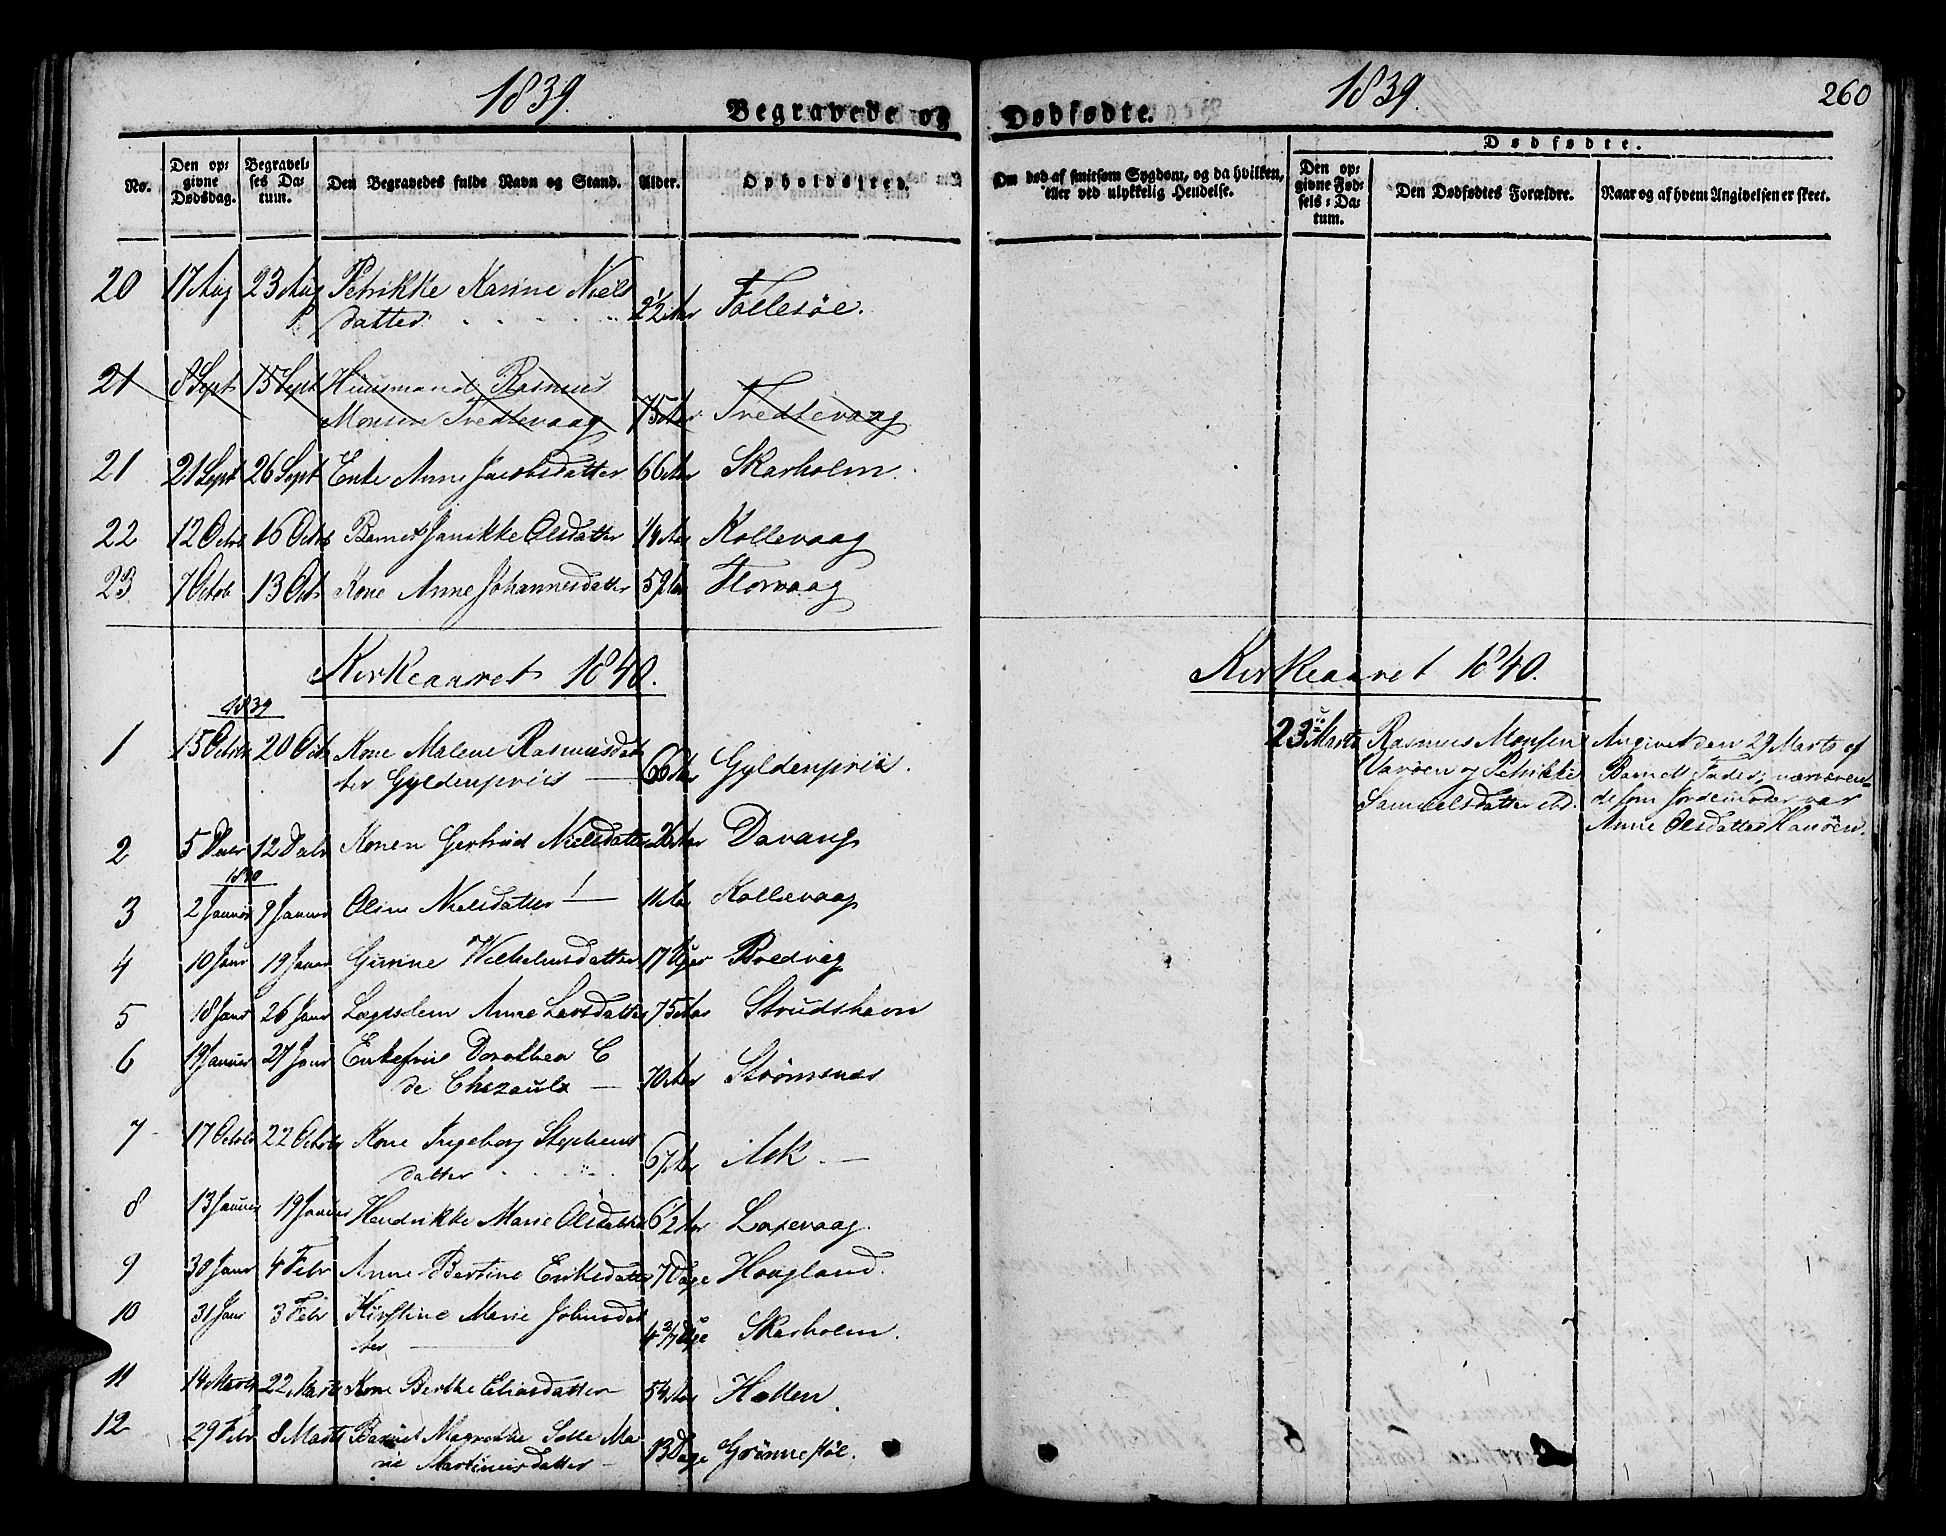 1839.
Begravede og
No.
Den op-
givne
Dødsdag.
Begravel-
ses Da-
tum.
Den Begravedes fulde Navn og Stand.
Alder.
Opholdssted.
20 17 Aug 23 Aug Petrikke Karine Niels
datter 2 1/2 Aar Follesöe.
21 8 Sept 15 Sept Huusmand Rasmus
Monsen Tredtevaag 75 Aar Tredtevaag
21 21 Sept 26 Sept Enke Anne Jacobsdatter 66 Aar Skarholm.
22 12 Octob 16 Octob Barnet Janikke Olsdatter 1/4 Aar Kollevaag
23 7 Octob 13 Oct Kone Anne Johannesdatter 59 Aar Florvaag
Kirkeaaret 1840.
1839
1 15 Octob 20 Oct Kone Malene Rasmusdat
ter Gyldenpriis 66 Aar Gyldenpriis.
2 5 Decbr 12 Decbr Konen Gertrud Nielsdatter 26 Aar Davang
1840
3 2 Januar 9 Januar Oline Nielsdatter 11 Aar Kollevaag
4 10 Janr 19 Janr Gurine Wilhelmsdatter 17 Uger Bredvig
5 18 Janr 26 Janr Lægdslem Anne Larsdatter 75 Aar Strudshavn
6 19 Januar 27 Janr Enkefrue Dorothea C
de Chezaulx 70 Aar Strömsnæs
7 17 Octobr 22 Octobr Kone Ingeborg Stephens
datter 67 Aar Ask.
8 13 Januar 19 Januar Hendrikke Marie Olsdatter 6 1/2 Aar Laxevaag.
9 30 Janr 4 Febr Anne Bertine Eriksdatter 7 Dage Hougland.
10 31 Janr 3 Febr Kirstine Marie Johnsdat
ter 4 2/7 Uge Skarholm.
11 14 Marts 22 Marts Kone Berthe Eliasdatter 54 Aar Hatten.
12 29 Febr 8 Marts Barnet Magrethe Ma
rie Martinusdatter 13 Dage Grönnestöl.
1839.
260
Dødfødte.
Om død af smitsom Sygdom, og da hvilken,
eller ved ulykkelig Hendelse.
Dødfødte.
Den op-
givne Fød-
sels-Da-
tum.
Den Dødfødtes Forældre.
Naar og af hvem Angivelsen er skeet.
Kirkeaaret 1840.
23 Marts Rasmus Monsen Angivet den 29 Marts af
Varöen og Petrikke Barnets Fader; nærværen-
Samuelsdatter de som Jordemoder var
Anne Olsdatter Hanöen.